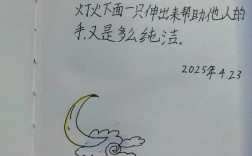 灯火下面一只伸出来帮助他人的
手,又是多么纯洁.
2025年4.23